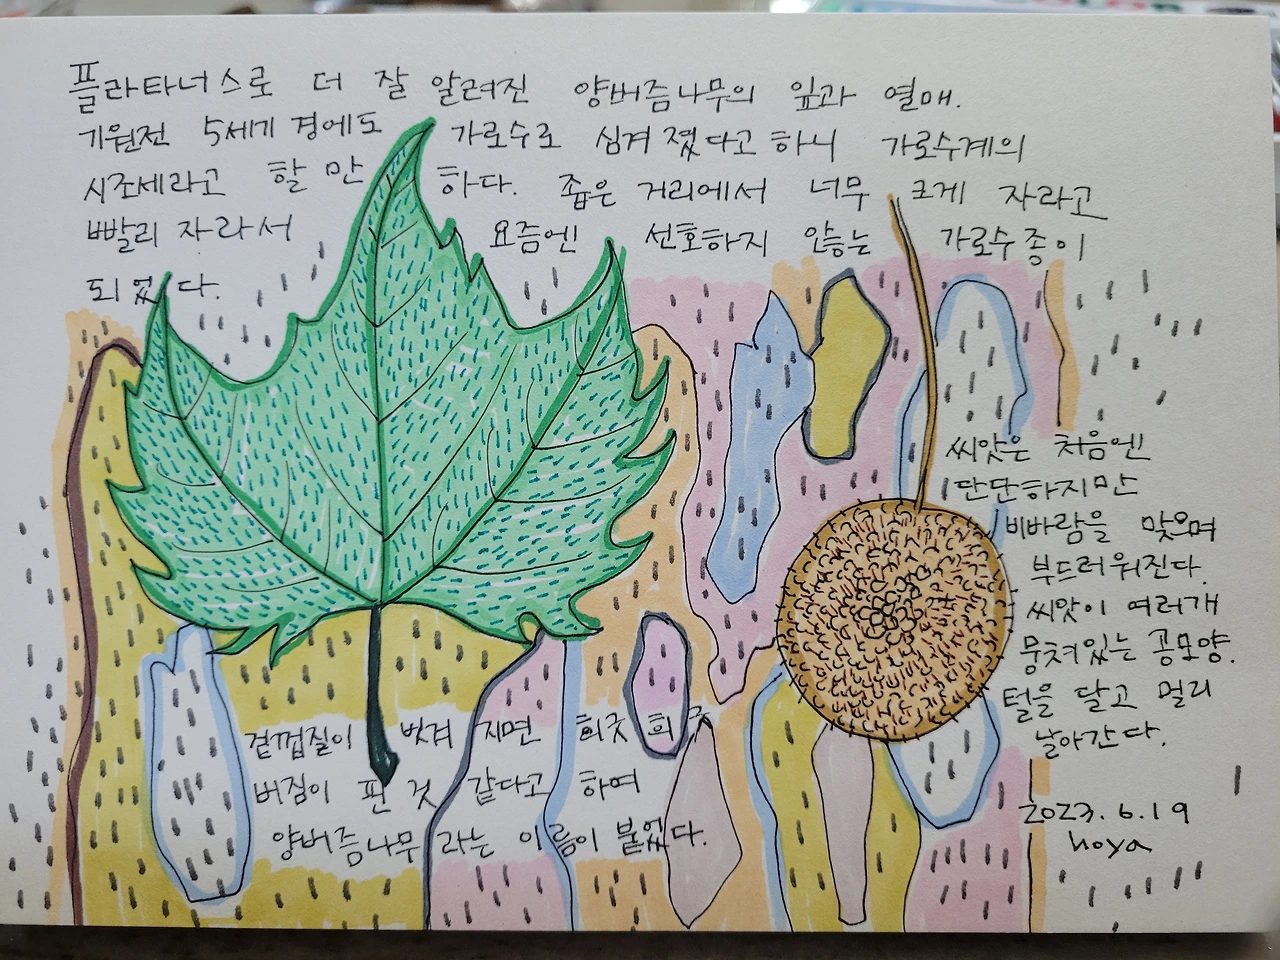 플라타너스로 더 잘 알려진 양버즘나무의 잎과 열매.
기원전 5세기 경에도 가로수로 심겨 졌다고 하니 가로수계의
시조새라고 할 만 하다. 좁은 거리에서 너무 크게 자라고
빨리 자라서 요즘엔 선호하지 않는 가로수종이
되었다.
씨앗은 처음엔
단단하지만
비바람을 맞으며
부드러워진다.
씨앗이 여러개
뭉쳐있는 공모양.
털을 달고 멀리
날아간다.
겉껍질이 벗겨 지면 희긋 희긋
버짐이 핀 것 같다고 하여
양버즘나무 라는 이름이 붙었다.
2023. 6. 19
hoya